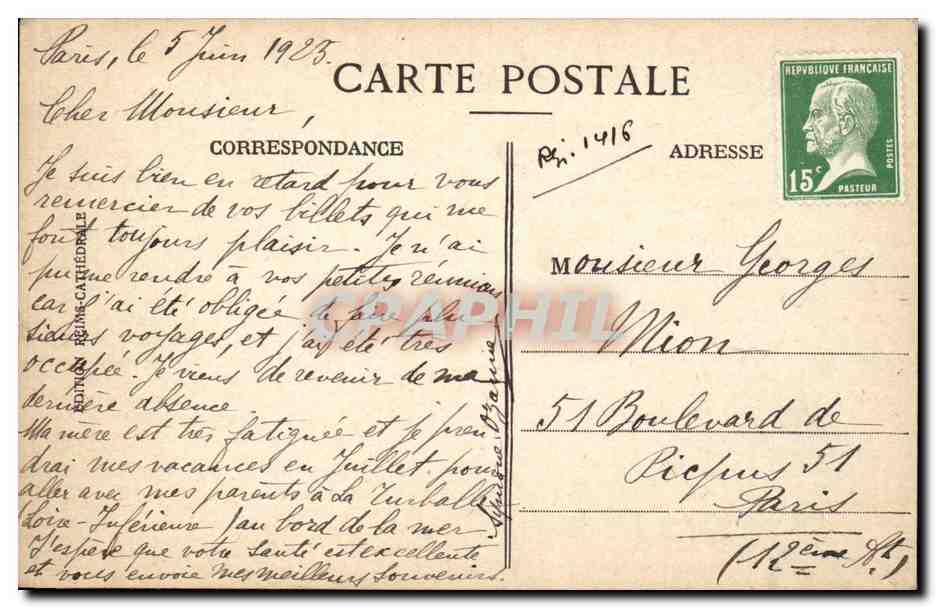 Paris, le 5 Juin 1925.
CARTE POSTALE
Cher Monsieur,
CORRESPONDANCE
Je suis bien en retard pour vous
remercier de vos billets qui me
font toujours plaisir. Je n'ai
pu me rendre à vos petites réunions
car j'ai été obligée de faire plu-
sieurs voyages, et j'ai été très
occupée. Je viens de revenir de ma
dernière absence.
Ma mère est très fatiguée et je pren
drai mes vacances en Juillet pour
aller avec mes parents à La Turballe
Loire-Inférieure (au bord de la mer
J'espère que votre santé est excellente
et vous envoie mes meilleurs souvenirs.
Simone Ozanne
EDITION REIMS-CATHÉDRALE
1416
ADRESSE
REPUBLIQUE FRANÇAISE
POSTES
15c
PASTEUR
Monsieur Georges
Mion
51 Boulevard de
Picpus 51
Paris
(12ème At.)
CPAPHIL